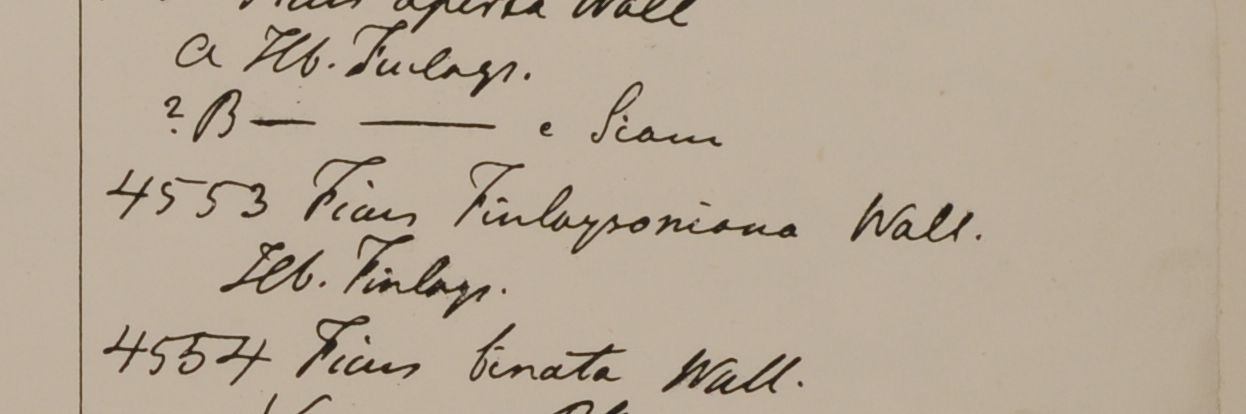 Ficus aperta Wall
a Hb. Finlays.
? B — — e Siam
4553 Ficus Finlaysoniana Wall.
Hb. Finlays.
4554 Ficus binata Wall.